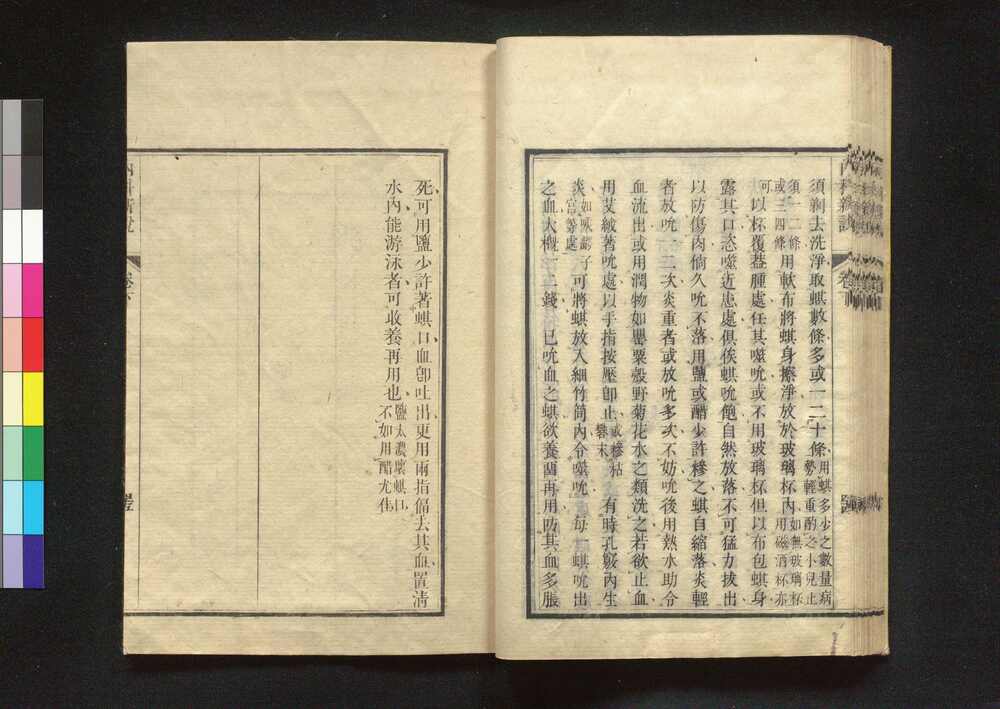 須剃去洗淨取蜞數條多或一二十條用蜞多少之數量病勢輕重酌之小兒止
須一二條或三四條用軟布將蜞身擦淨放於玻璃杯內如無玻璃杯用磁酒杯亦
可以杯覆蓋腫處任其噬吮或不用玻璃杯但以布包蜞身
露其口恣噬近患處俱俟蜞吮飽自然放落不可猛力拔出
以防傷肉倘久吮不落用鹽或醋少許糝之蜞自縮落炎輕
者放吮一二次炎重者或放吮多次不妨吮後用熱水助令
血流出或用潤物如罌粟殼野菊花水之類洗之若欲止血
用艾絨著吮處以手指按壓卽止或糝枯礬末有時孔竅內生
炎如喉齶子宮等處可將蜞放入細竹筒內令噬吮每一蜞吮出
之血大概一二錢已吮血之蜞欲養固再用防其血多脹
死可用鹽少許著蜞口血卽吐出更用兩指偪去其血置清
水內能游泳者可收養再用也鹽太濃壞蜞口不如用醋尤佳
內科新說
卷下